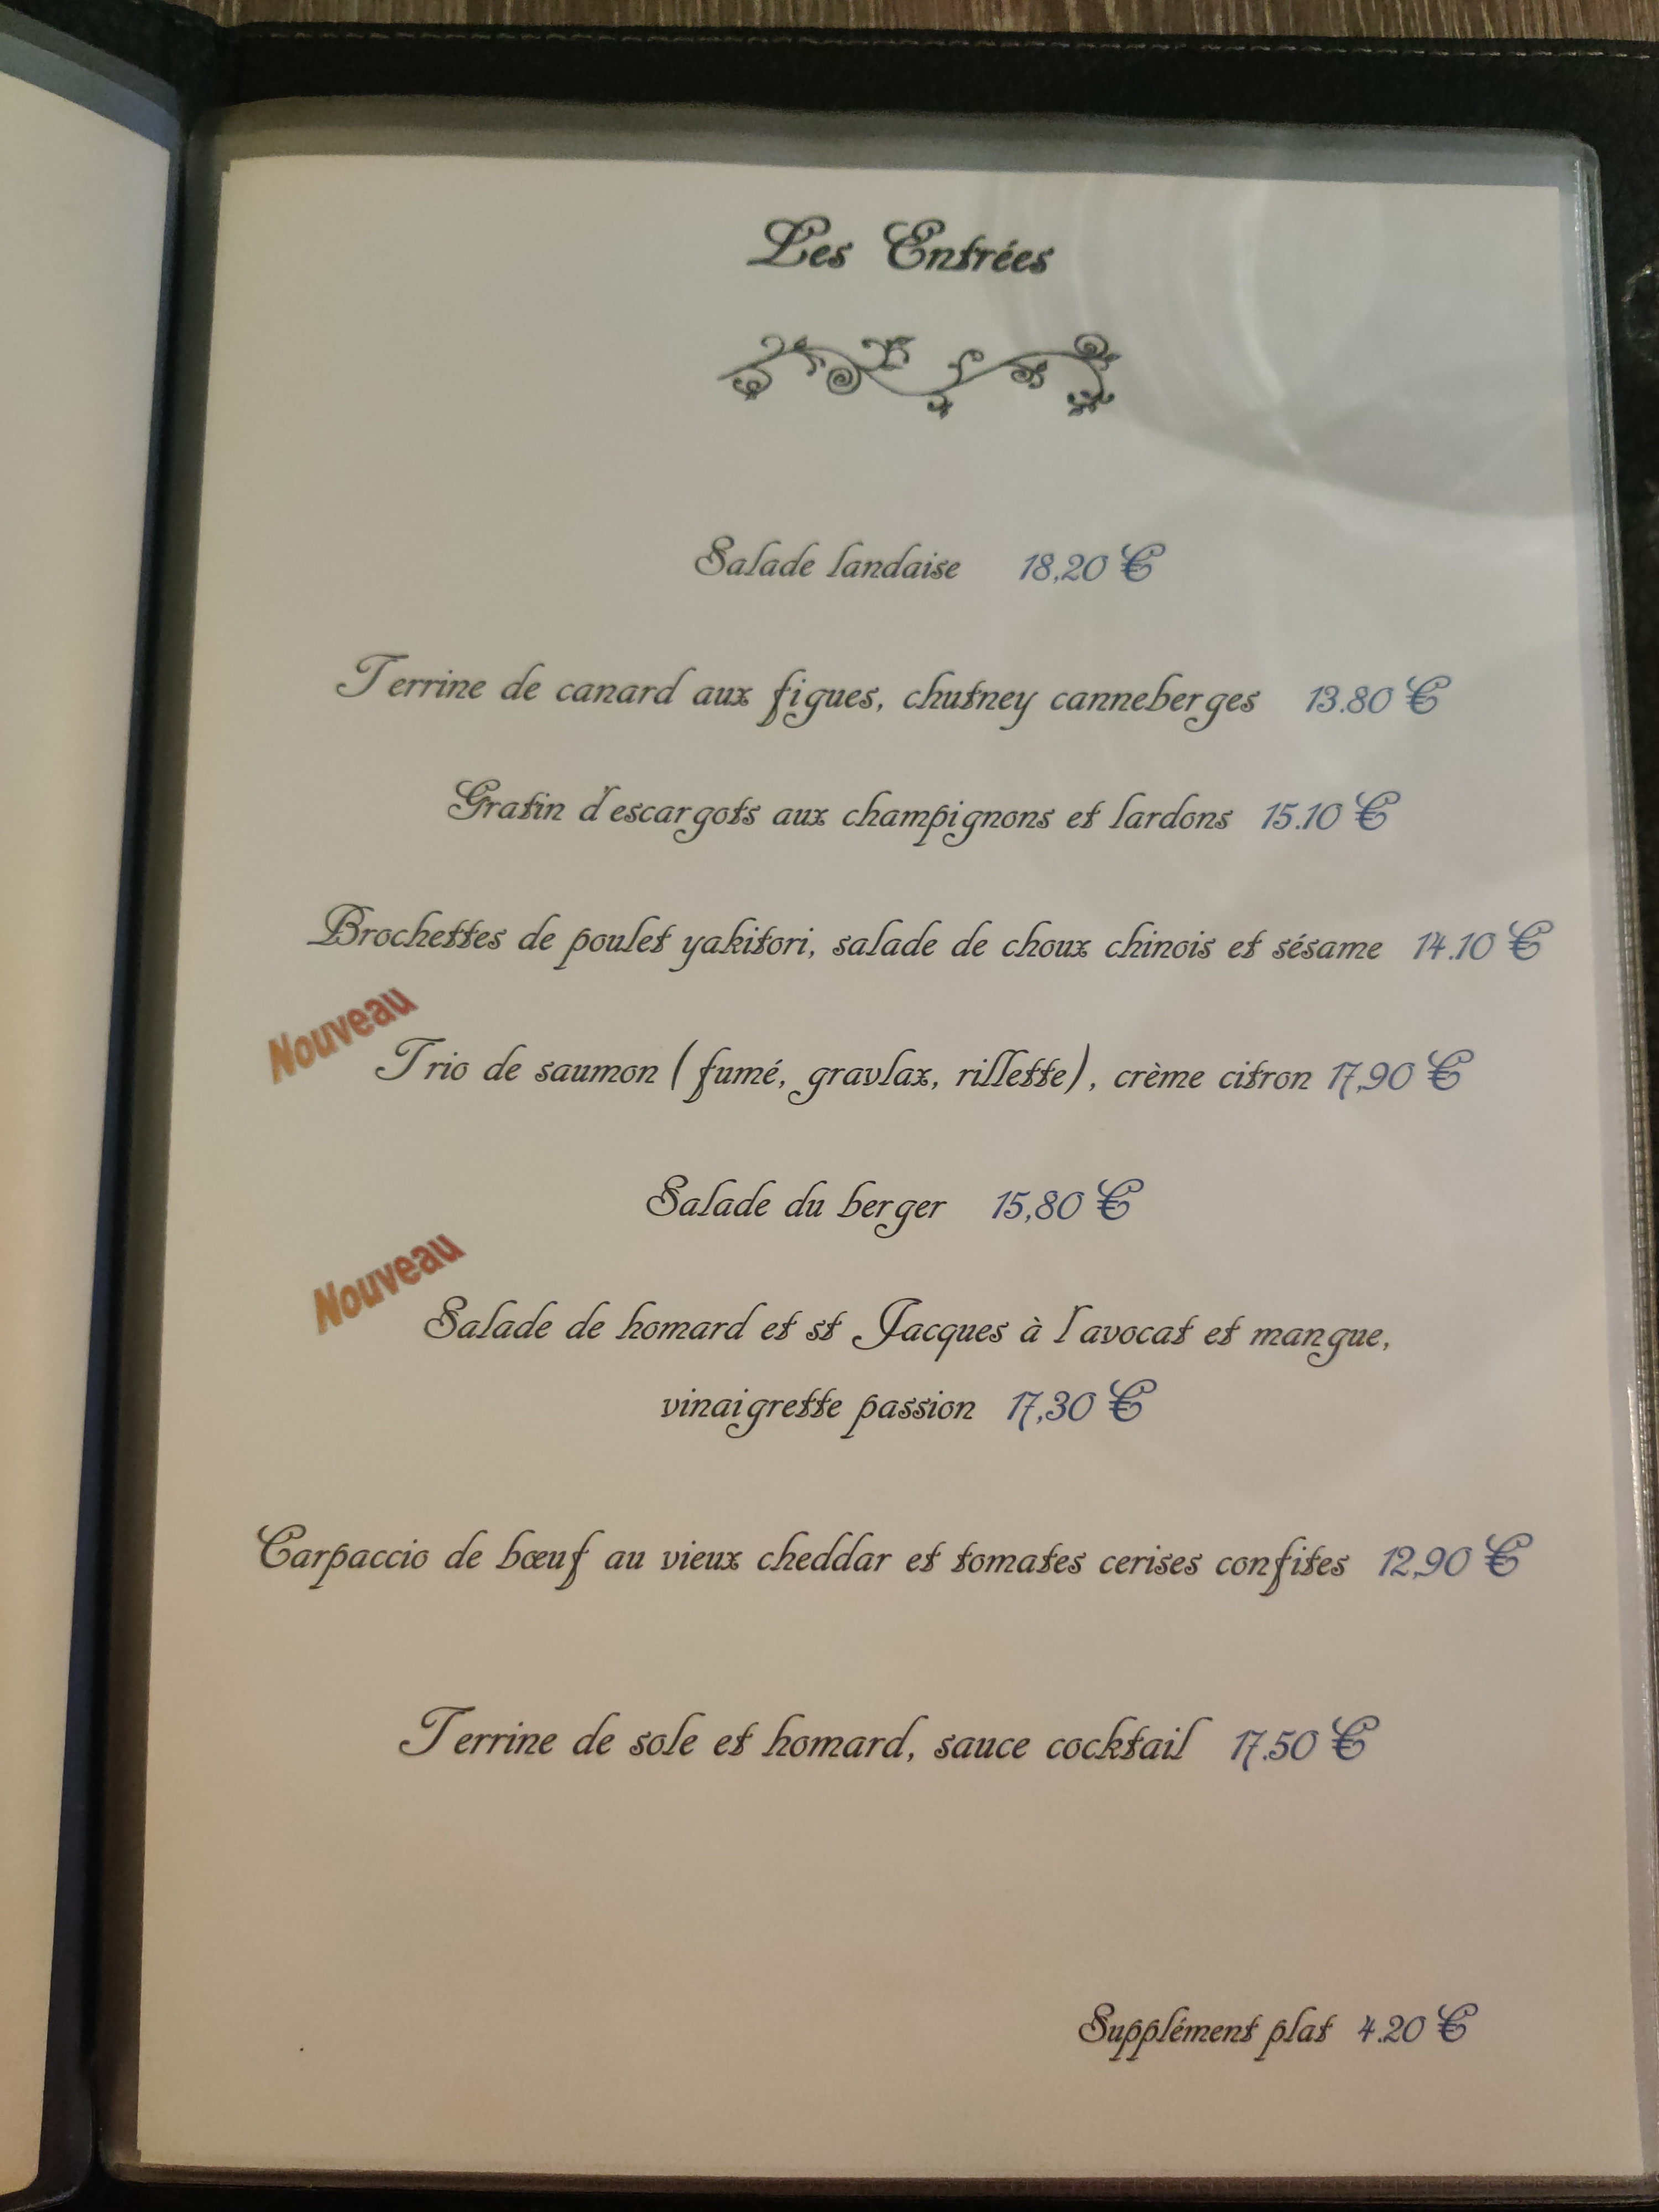 Les Entrées
Salade landaise 18,20 €
Terrine de canard aux figues, chutney canneberges 13.80 €
Gratin d'escargots aux champignons et lardons 15.10 €
Brochettes de poulet yakitori, salade de choux chinois et sésame 14.10 €
Nouveau
Trio de saumon (fumé, gravlax, rillette), crème citron 17,90 €
Salade du berger 15,80 €
Nouveau
Salade de homard et st Jacques à l'avocat et mangue,
vinaigrette passion 17,30 €
Carpaccio de bœuf au vieux cheddar et tomates cerises confites 12,90 €
Terrine de sole et homard, sauce cocktail 17.50 €
Supplément plat 4.20 €